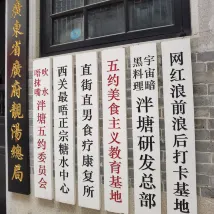 廣東省廣府靚湯總局
吹水
唔抹嘴
泮塘五约委员会
西关最唔正宗糖水中心
直街直男食疗康复所
五约美食主义教育基地
宇宙暗
黑料理
泮塘研发总部
网红浪前浪后打卡基地